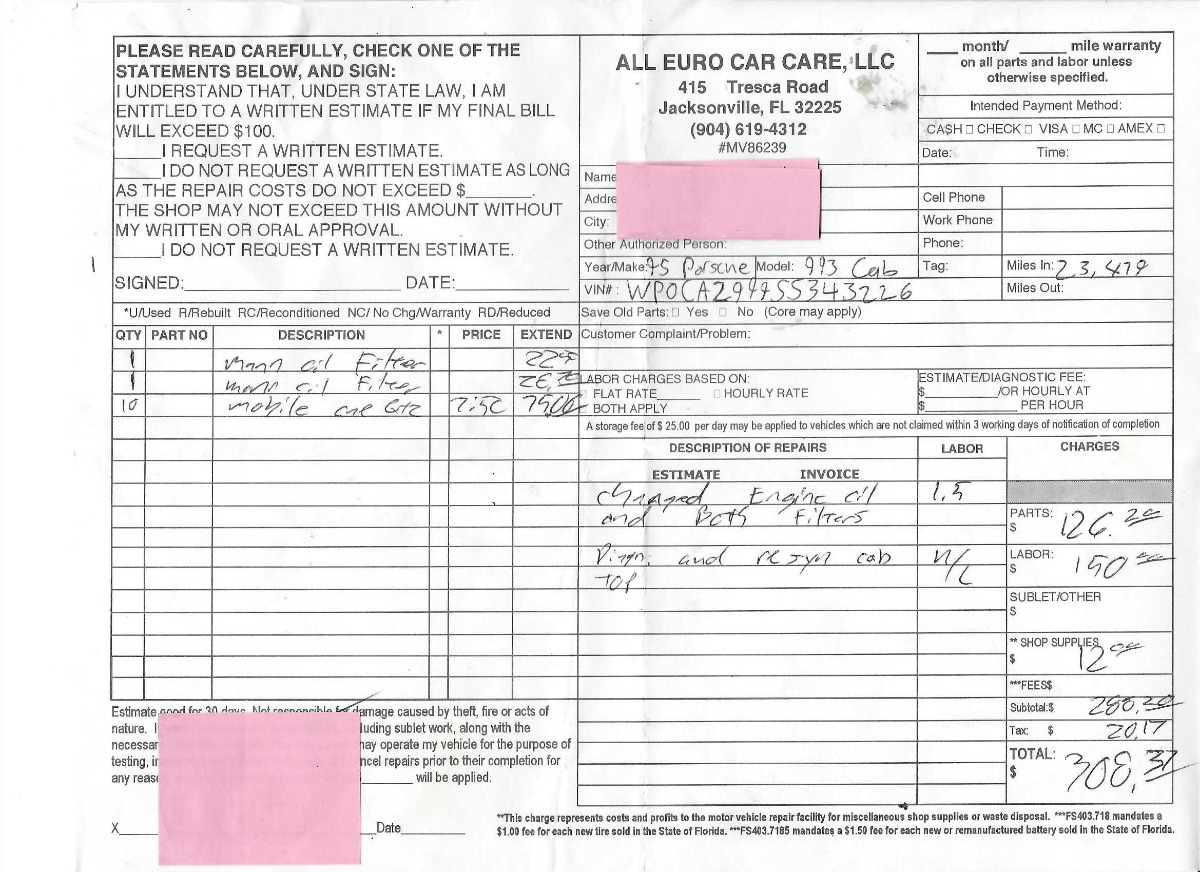 PLEASE READ CAREFULLY, CHECK ONE OF THE
STATEMENTS BELOW, AND SIGN:
I UNDERSTAND THAT, UNDER STATE LAW, I AM
ENTITLED TO A WRITTEN ESTIMATE IF MY FINAL BILL
WILL EXCEED $100.
____I REQUEST A WRITTEN ESTIMATE.
____I DO NOT REQUEST A WRITTEN ESTIMATE AS LONG
AS THE REPAIR COSTS DO NOT EXCEED $______.
THE SHOP MAY NOT EXCEED THIS AMOUNT WITHOUT
MY WRITTEN OR ORAL APPROVAL.
____I DO NOT REQUEST A WRITTEN ESTIMATE.
SIGNED:____________________ DATE:__________
ALL EURO CAR CARE, LLC
415 Tresca Road
Jacksonville, FL 32225
(904) 619-4312
#MV86239
___ month/ _____ mile warranty
on all parts and labor unless
otherwise specified.
Intended Payment Method:
CA$H □ CHECK □ VISA □ MC □ AMEX □
Date: Time:
Name
Addre
City:
Cell Phone
Work Phone
Other Authorized Person: Phone:
Year/Make: 95 Porsche Model: 993 Cab Tag: Miles In: 23,479
VIN#: WP0CA2999SS343226 Miles Out:
*U/Used R/Rebuilt RC/Reconditioned NC/ No Chg/Warranty RD/Reduced
Save Old Parts: □ Yes □ No (Core may apply)
QTY PART NO DESCRIPTION * PRICE EXTEND
Customer Complaint/Problem:
1 mann oil Filter
1 mann oil Filter
10 mobile one 7.50 75.00
LABOR CHARGES BASED ON:
□ FLAT RATE______ □ HOURLY RATE
□ BOTH APPLY
ESTIMATE/DIAGNOSTIC FEE:
$__________/OR HOURLY AT
$____________ PER HOUR
A storage fee of $ 25.00 per day may be applied to vehicles which are not claimed within 3 working days of notification of completion
DESCRIPTION OF REPAIRS LABOR CHARGES
ESTIMATE INVOICE
Changed Engine oil 1.5
and Both Filters
PARTS: $ 126.20
Diagn. and resyn cab N/C
top
LABOR: $ 150.00
SUBLET/OTHER
$
** SHOP SUPPLIES
$ 12.00
***FEES$
Subtotal:$ 288.20
Tax: $ 20.17
TOTAL:
$ 308.37
Estimate good for 30 days. Not responsible for damage caused by theft, fire or acts of
nature. I luding sublet work, along with the
necessar ay operate my vehicle for the purpose of
testing, in ncel repairs prior to their completion for
any reaso ______ will be applied.
X Date__________
**This charge represents costs and profits to the motor vehicle repair facility for miscellaneous shop supplies or waste disposal. ***FS403.718 mandates a
$1.00 fee for each new tire sold in the State of Florida. ***FS403.7185 mandates a $1.50 fee for each new or remanufactured battery sold in the State of Florida.